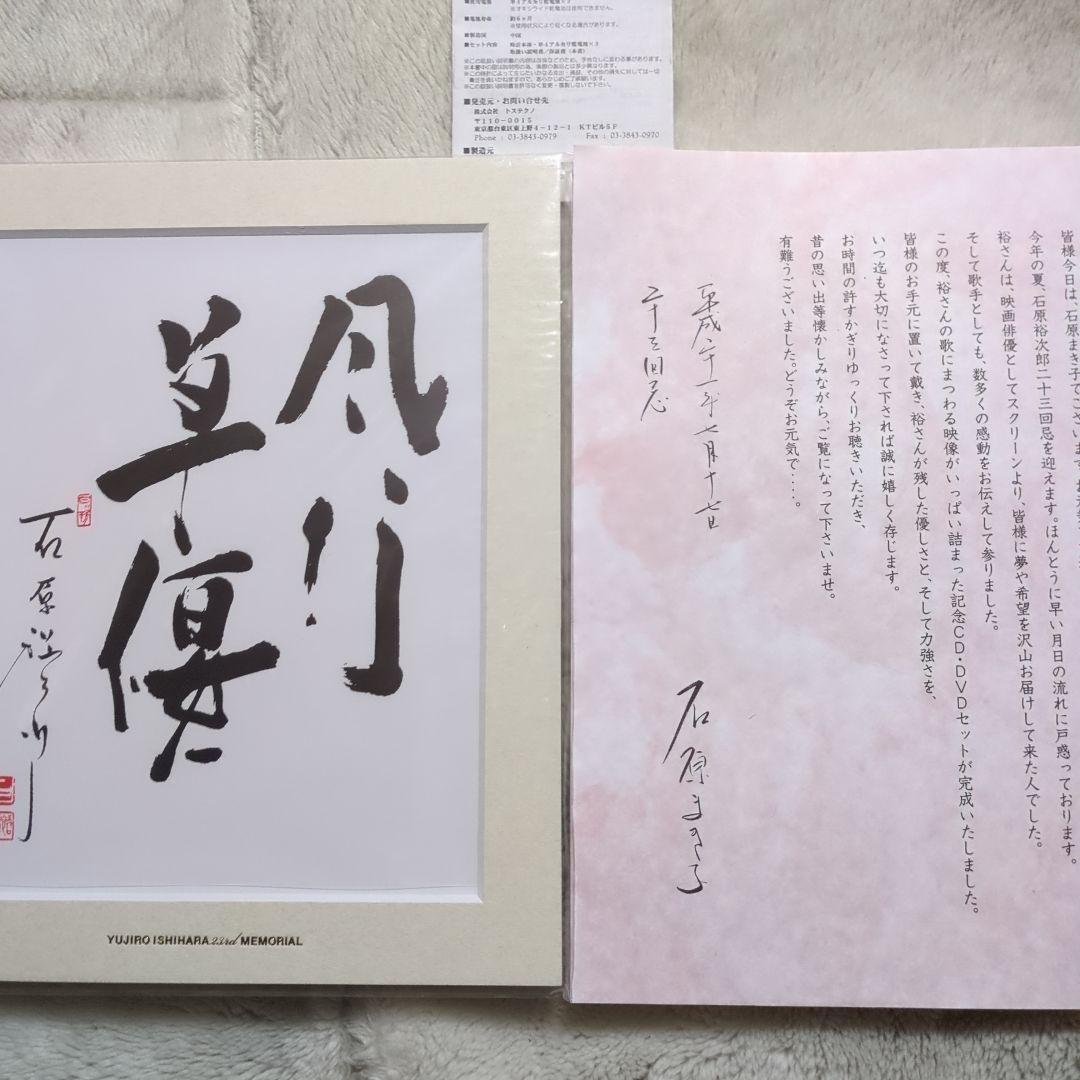 ■使用電池 単4アルカリ乾電池×3
※オキシライド乾電池は使用できません。
■電池寿命 約6ヶ月
※使用状況により短くなる場合があります。
■製造国 中国
■セット内容 時計本体・単4アルカリ乾電池×3
取扱い説明書／保証書（本書）
■発売元・お問い合せ先
株式会社 トステクノ
〒110-0015
東京都台東区東上野4-12-1 KTビル5F
Phone : 03-3843-0979 Fax : 03-3843-0970
■製造元
風行
草偃
石原裕次郎
YUJIRO ISHIHARA 23rd MEMORIAL
皆様今日は、石原まき子でございます。
今年の夏、石原裕次郎二十三回忌を迎えます。ほんとうに早い月日の流れに戸惑っております。
裕さんは、映画俳優としてスクリーンより、皆様に夢や希望を沢山お届けして来た人でした。
そして歌手としても、数多くの感動をお伝えして参りました。
この度、裕さんの歌にまつわる映像がいっぱい詰まった記念CD・DVDセットが完成いたしました。
皆様のお手元に置いて戴き、裕さんが残した優しさと、そして力強さを、
いつ迄も大切になさって下されば誠に嬉しく存じます。
お時間の許すかぎりゆっくりお聴きいただき、
昔の思い出等懐かしみながら、ご覧になって下さいませ。
有難うございました。どうぞお元気で・・・・。
平成二十一年七月十七日
二十三回忌
石原まき子